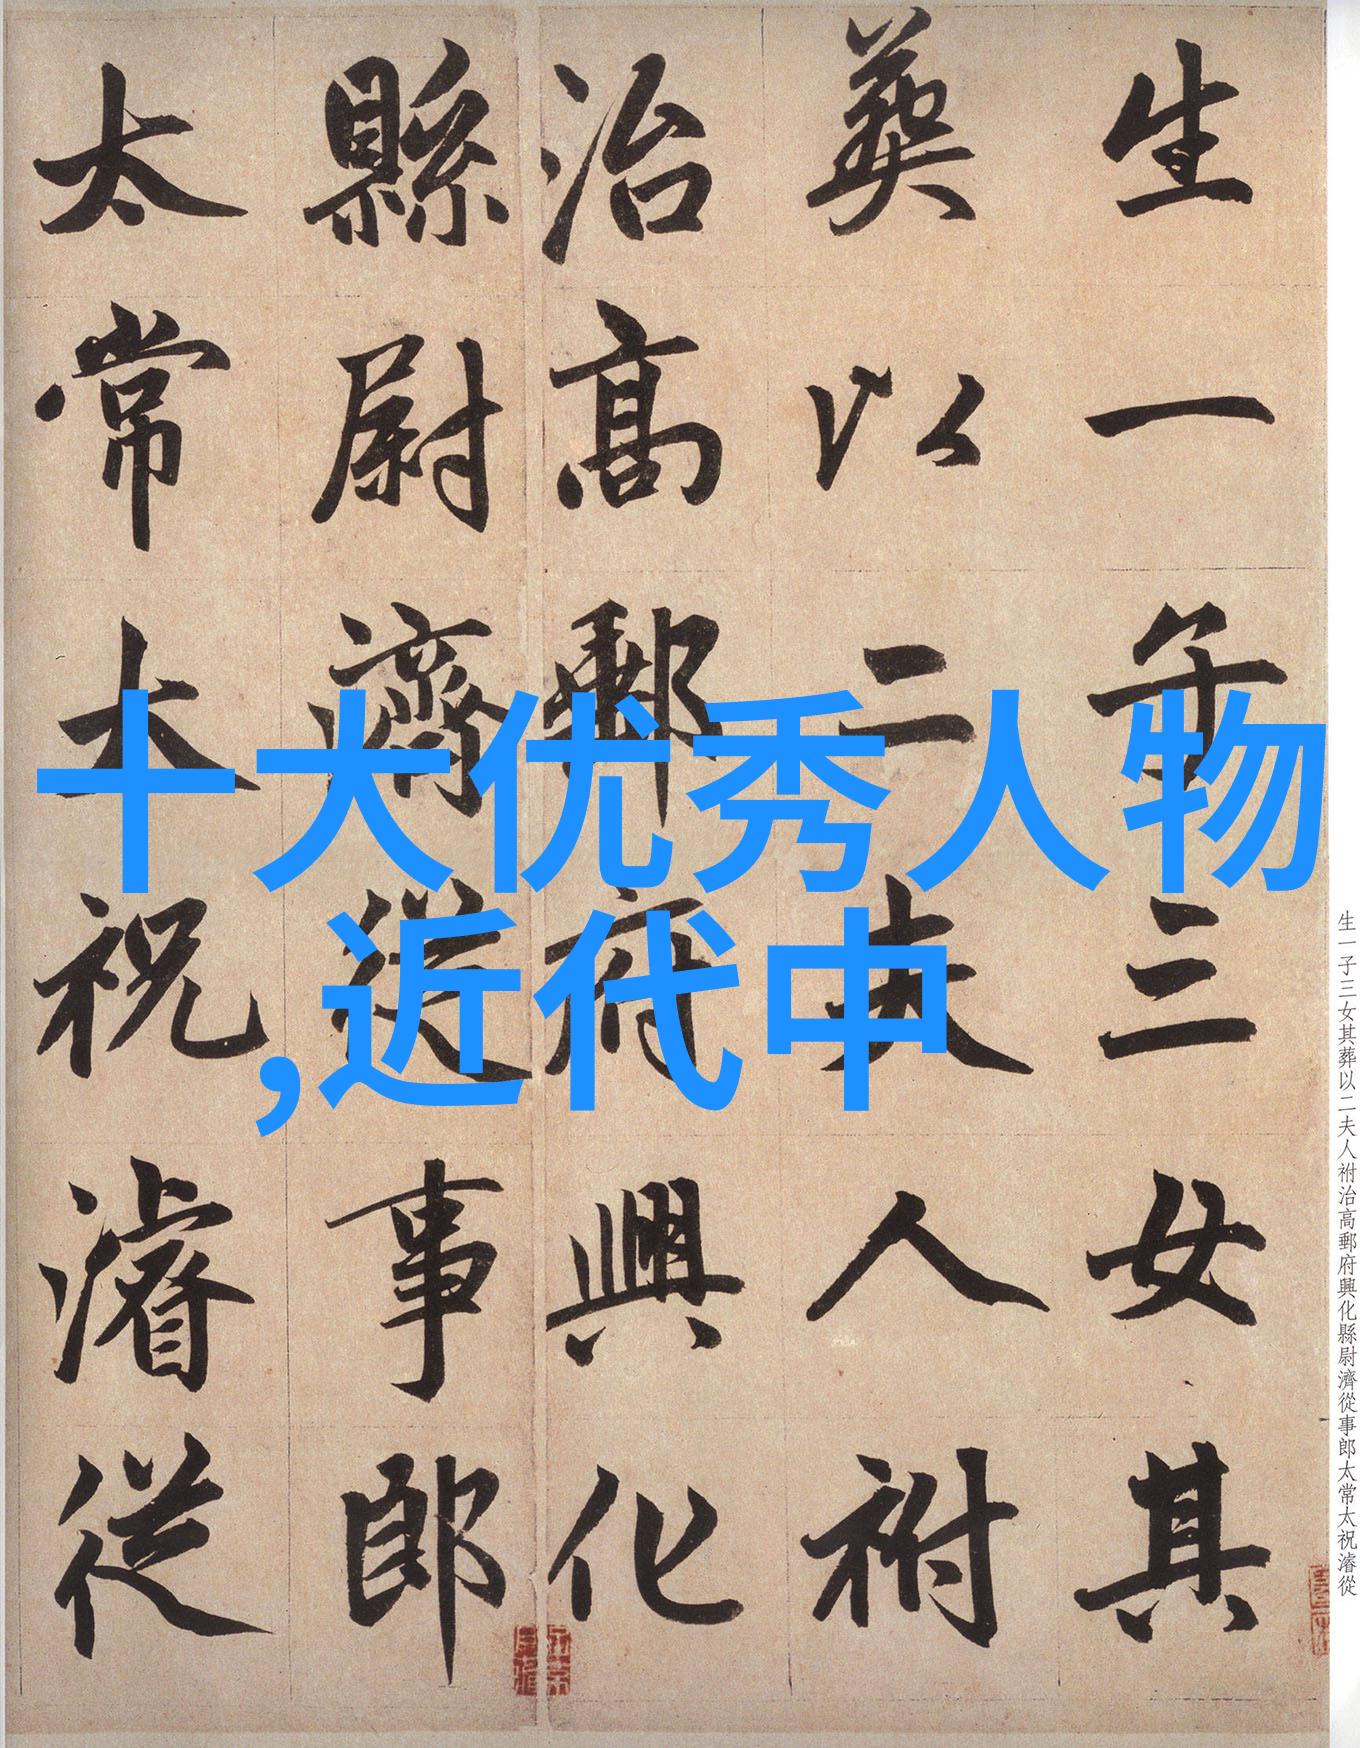 生一子三女其
葬以二夫人祔
治高郵府興化
縣尉濟從事郎
太常太祝濬從
十大优秀人物
,近代中
生一子三女其葬以二夫人祔治高郵府興化縣尉濟從事郎太常太祝濬從